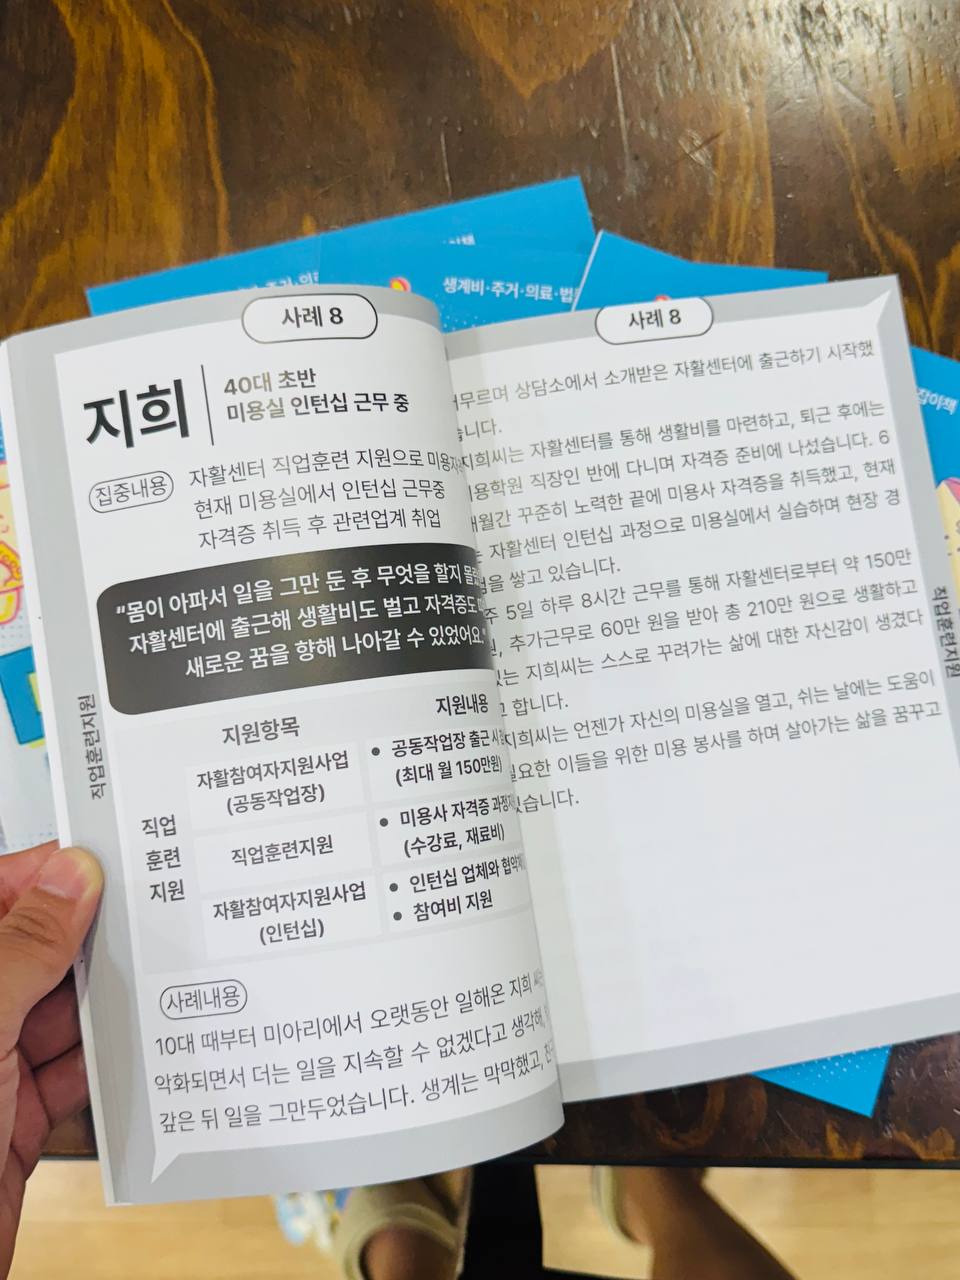 생계비·주거·의료·법
잡이책
사례 8
지희
40대 초반
미용실 인턴십 근무 중
집중내용
자활센터 직업훈련 지원으로
현재 미용실에서 인턴십 근무중
자격증 취득 후 관련업계 취업
"몸이 아파서 일을 그만 둔 후 무엇을 할지
자활센터에 출근해 생활비도 벌고 자격증도
새로운 꿈을 향해 나아갈 수 있었어요."
지원항목
지원내용
직업
훈련
지원
자활참여자지원사업
(공동작업장)
• 공동작업장 출근
(최대 월 150만원)
직업훈련지원
• 미용사 자격증
(수강료, 재료비)
자활참여자지원사업
(인턴십)
• 인턴십 업체와
• 참여비 지원
사례내용
10대 때부터 미아리에서 오랫동안 일해온 지희
악화되면서 더는 일을 지속할 수 없겠다고 생각해,
갚은 뒤 일을 그만두었습니다. 생계는 막막했고,
직업훈련지원
사례 8
상담소에서 소개받은 자활센터에 출근하기 시작했
습니다.
지희씨는 자활센터를 통해 생활비를 마련하고, 퇴근 후에는
직장인 반에 다니며 자격증 준비에 나섰습니다. 6
꾸준히 노력한 끝에 미용사 자격증을 취득했고, 현재
자활센터 인턴십 과정으로 미용실에서 실습하며 현장 경
쌓고 있습니다.
5일 하루 8시간 근무를 통해 자활센터로부터 약 150만
추가근무로 60만 원을 받아 총 210만 원으로 생활하고
지희씨는 스스로 꾸려가는 삶에 대한 자신감이 생겼다
합니다.
지희씨는 언젠가 자신의 미용실을 열고, 쉬는 날에는 도움이
이들을 위한 미용 봉사를 하며 살아가는 삶을 꿈꾸고
있습니다.
직업훈련지원